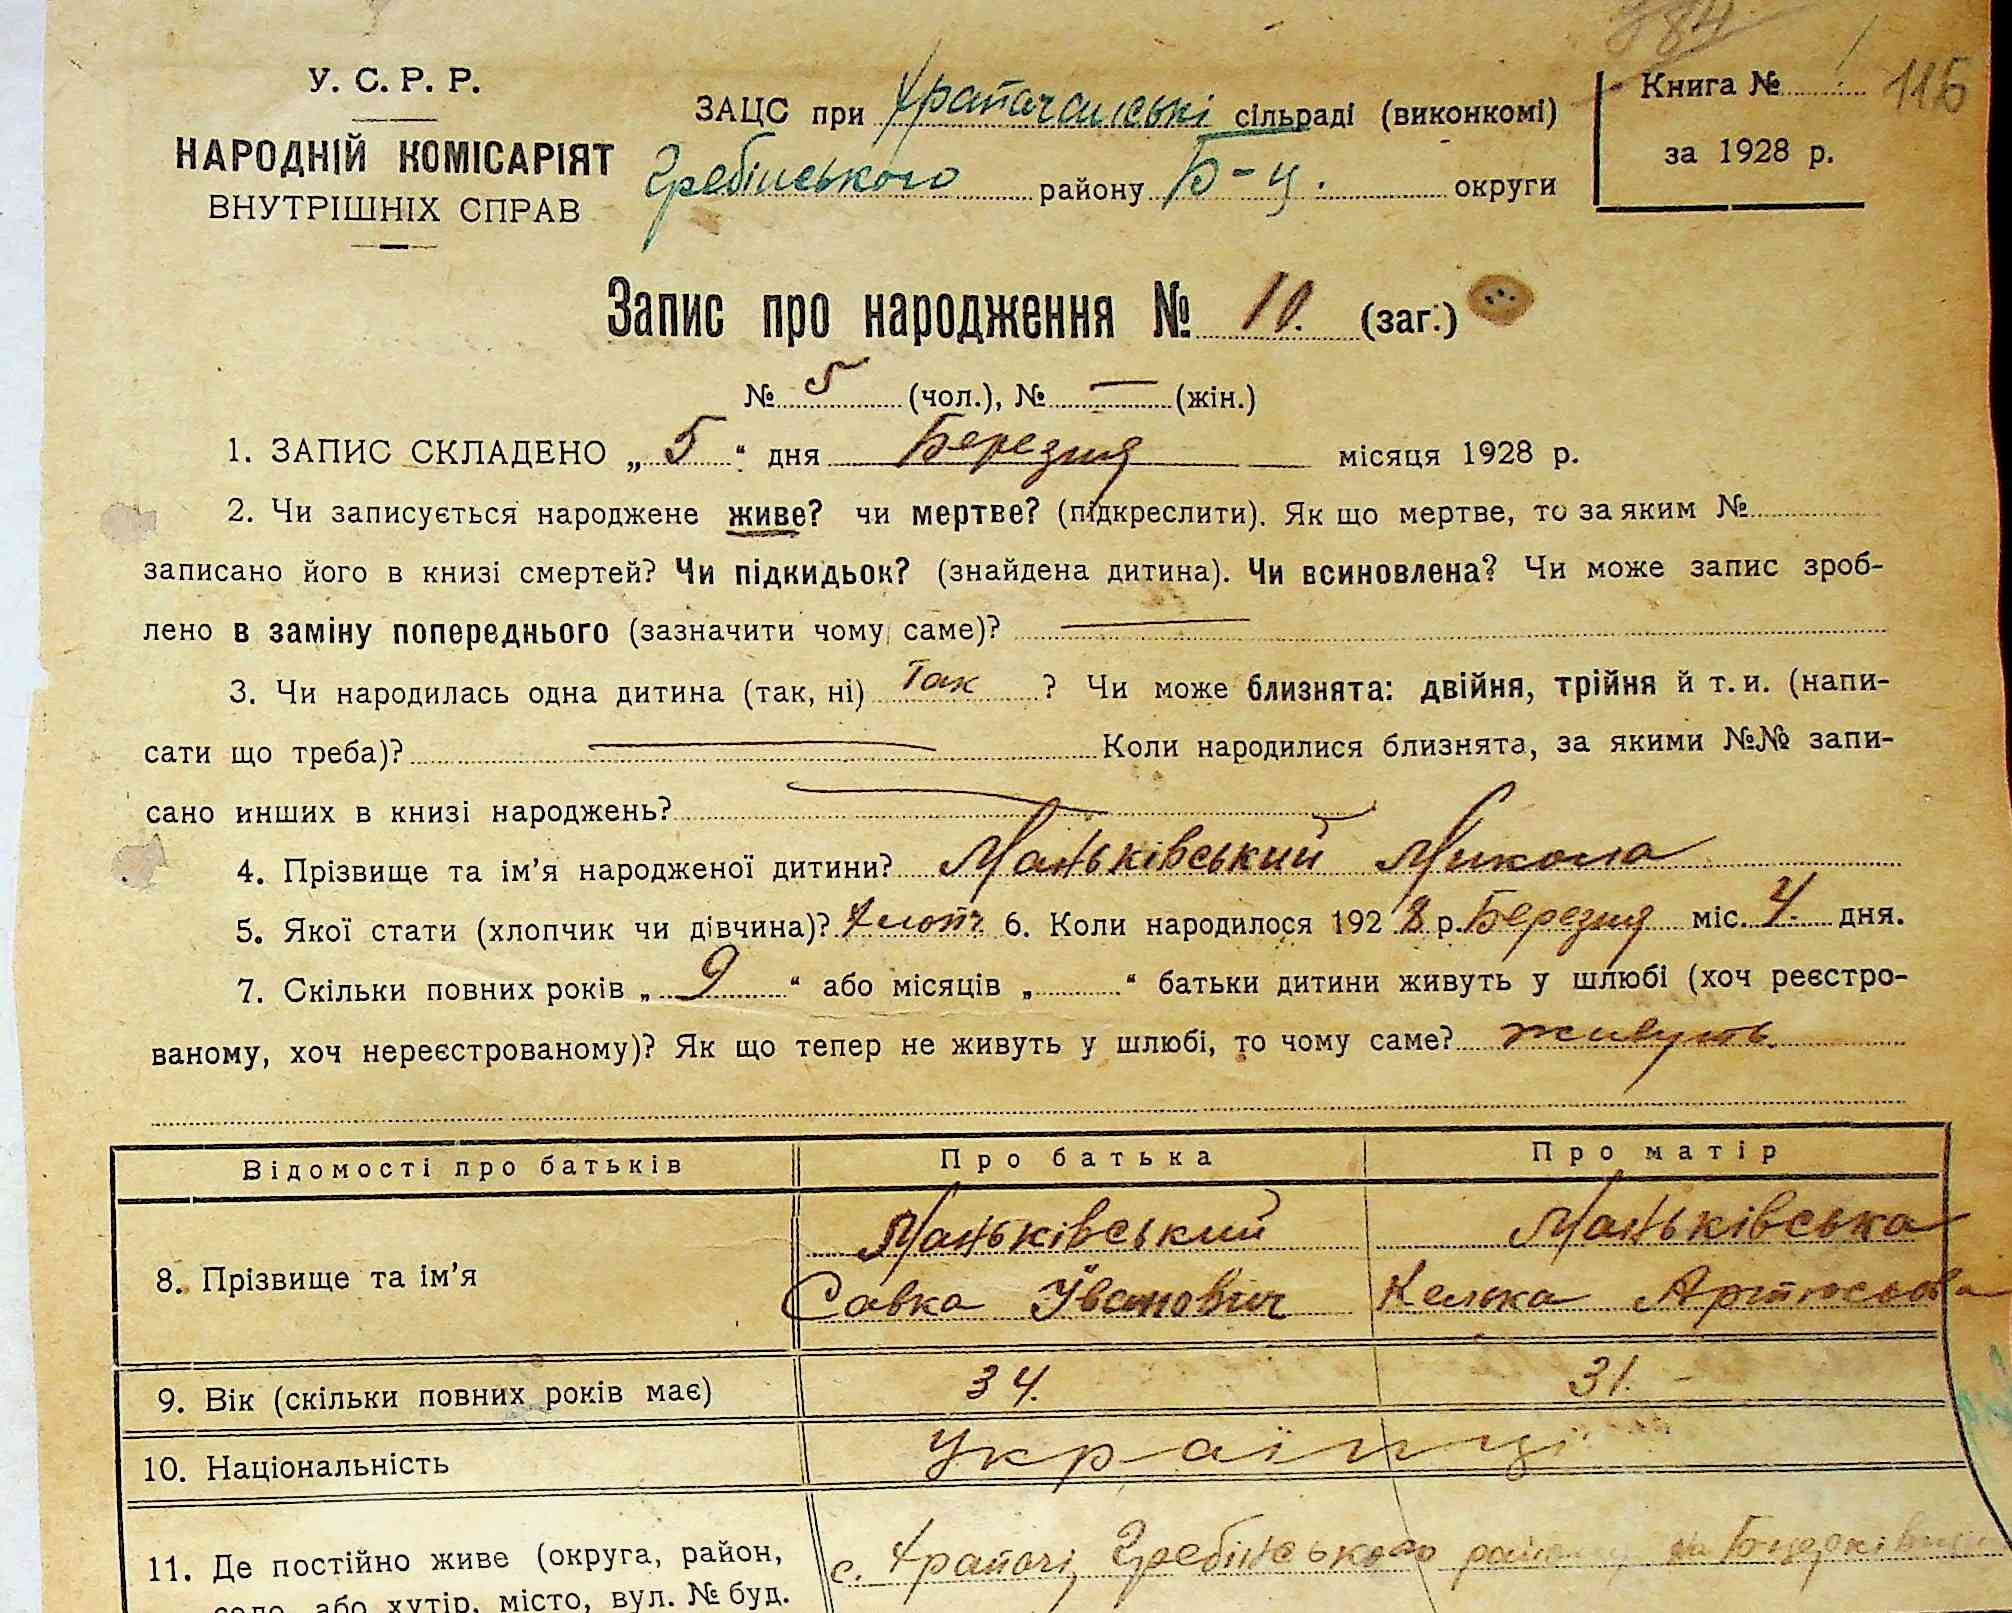 У. С. Р. Р.
НАРОДНІЙ КОМІСАРІЯТ
ВНУТРІШНІХ СПРАВ
ЗАЦС при Храпачанські сільраді (виконкомі)
Гребінського району Б-Ц. округи
Книга № 115
за 1928 р.
Запис про народження № 10. (заг.)
№ 5 (чол.), № — (жін.)
1. ЗАПИС СКЛАДЕНО „ 5 “ дня Березня місяця 1928 р.
2. Чи записується народжене живе? чи мертве? (підкреслити). Як що мертве, то за яким №
записано його в книзі смертей? Чи підкидьок? (знайдена дитина). Чи всиновлена? Чи може запис зроб-
лено в заміну попереднього (зазначити чому саме)? —
3. Чи народилась одна дитина (так, ні) Так ? Чи може близнята: двійня, трійня й т. и. (напи-
сати що треба)? — Коли народилися близнята, за якими №№ запи-
сано инших в книзі народжень?
4. Прізвище та ім’я народженої дитини? Маньківський Микола
5. Якої стати (хлопчик чи дівчина)? Хлопч 6. Коли народилося 1928 р. Березня міс. 4. дня.
7. Скільки повних років „ 9 “ або місяців „ “ батьки дитини живуть у шлюбі (хоч реєстро-
ваному, хоч нереєстрованому)? Як що тепер не живуть у шлюбі, то чому саме? живуть.
Відомості про батьків Про батька Про матір
8. Прізвище та ім’я Маньківський Маньківська
Савка Іванович
9. Вік (скільки повних років має) 34. 31.
10. Національність Українці
11. Де постійно живе (округа, район, с. Храпачі, Гребінського району
село, або хутір, місто, вул. № буд.